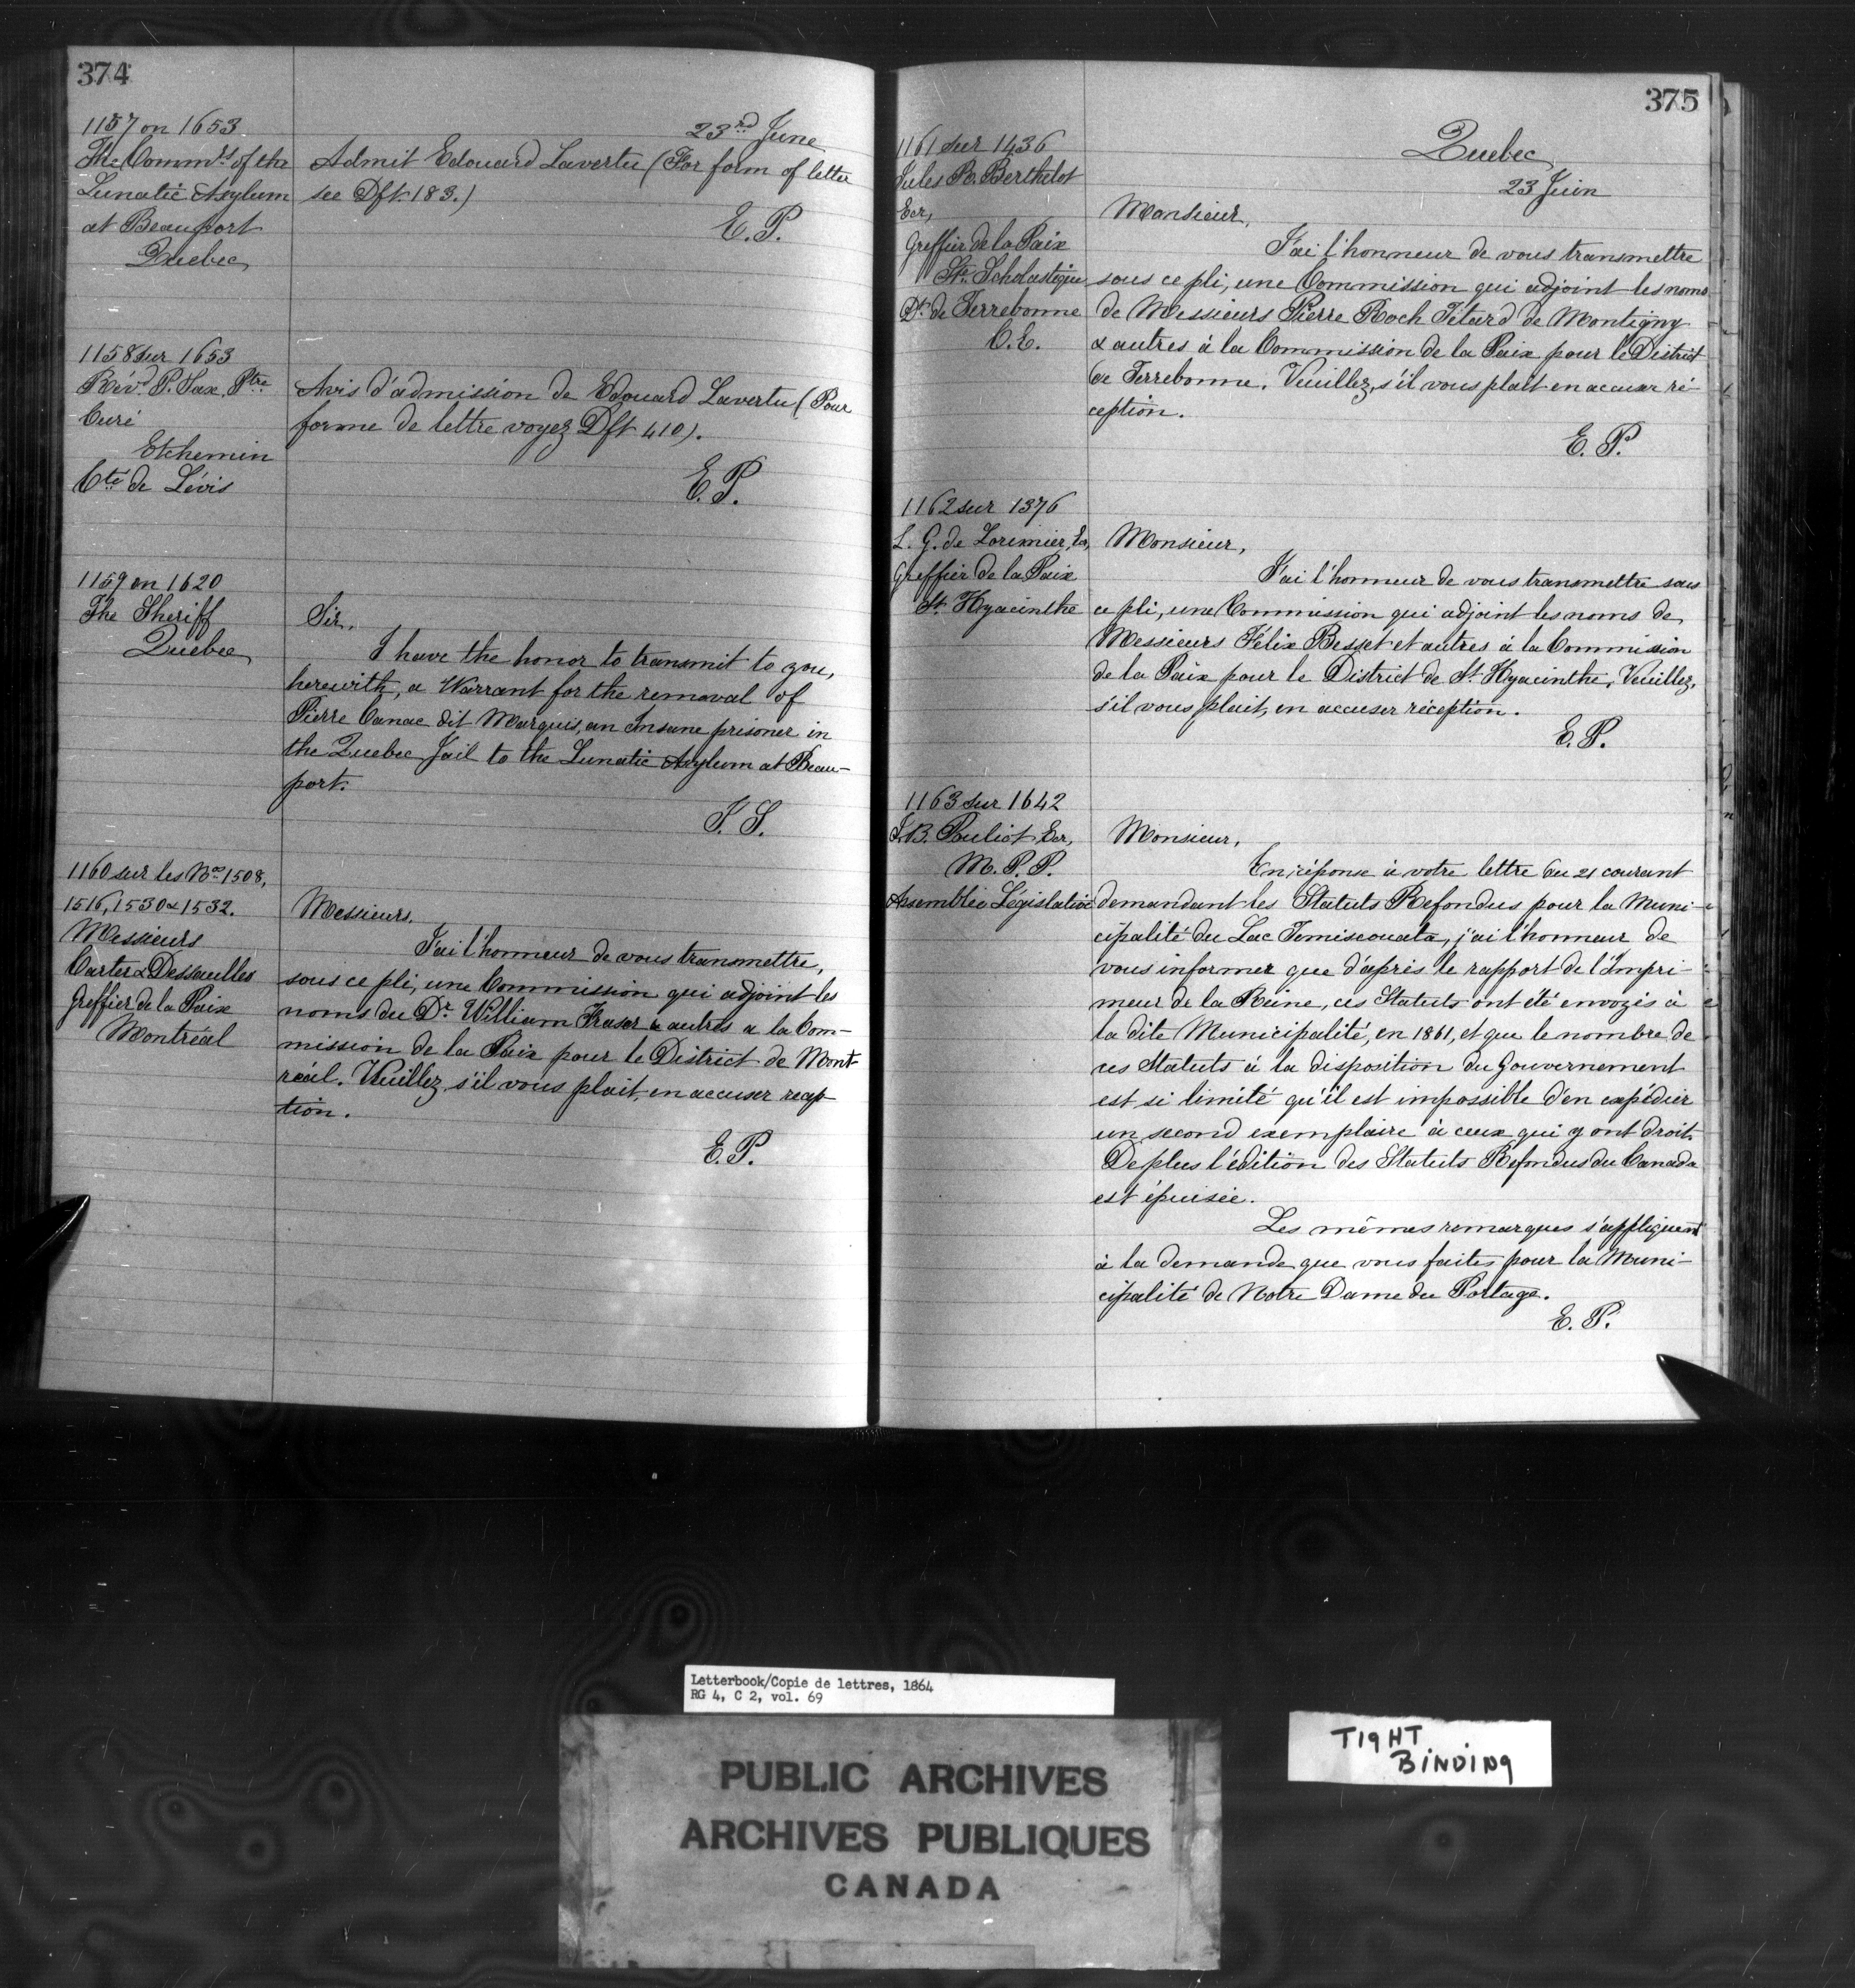 374
23rd June
1157 on 1653
The Commrs of the
Lunatic Asylum
at Beauport
Quebec
Admit Edouard Lavertu (For form of letter
see Dft. 183.)
E. P.
1158 sur 1653
Révd P. Sax, Ptre
Curé
Etchemin
Cté de Lévis
Avis d'admission de Edouard Lavertu (Pour
forme de lettre voyez Dft 410).
E. P.
1159 on 1620
The Sheriff
Quebec
Sir,
I have the honor to transmit to you,
herewith, a Warrant for the removal of
Pierre Canac dit Marquis, an Insane prisoner in
the Quebec Jail to the Lunatic Asylum at Beau-
port.
1160 sur les Nos 1508,
1516, 1530 & 1532.
Messieurs
Carter & Dessaulles
Greffier de la Paix
Montréal
Messieurs,
J'ai l'honneur de vous transmettre,
sous ce pli, une Commission qui adjoint les
noms du Dr. William Fraser & autres a la Com-
mission de la Paix pour le District de Mont
réal. Veuillez, s'il vous plait, en accuser récep
tion.
E. P.
375
Quebec
23 Juin
1161 sur 1436
Jules R. Berthelot
Ecr,
Greffier de la Paix
Ste Scholastique
Dt. de Terrebonne
C. E.
Monsieur,
J'ai l'honneur de vous transmettre
sous ce pli, une Commission qui adjoint les noms
de Messieurs Pierre Roch Tétard de Montigny
& autres à la Commission de la Paix pour le District
de Terrebonne. Veuillez, s'il vous plait en accuser ré-
ception.
E. P.
1162 sur 1376
L. G. de Lorimier, Ecr,
Greffier de la Paix
St. Hyacinthe
Monsieur,
J'ai l'honneur de vous transmettre sous
ce pli, une Commission qui adjoint les noms de
Messieurs Félix Besset et autres à la Commission
de la Paix pour le District de St. Hyacinthe, Veuillez,
s'il vous plait, en accuser réception.
E. P.
1163 sur 1642
J. B. Pouliot Ecr,
M. P. P.
Assemblée Législative
Monsieur,
En réponse à votre lettre du 21 courant
demandant les Statuts Refondus pour la Muni-
cipalité du Lac Temiscouata, j'ai l'honneur de
vous informer que d'après le rapport de l'Impri-
meur de la Reine, ces Statuts ont été envoyés à
la dite Municipalité, en 1861, et que le nombre de
ces Statuts à la disposition du Gouvernement
est si limité qu'il est impossible d'en expédier
un second exemplaire à ceux qui y ont droit.
De plus l'édition des Statuts Refondus du Canada
est épuisée.
Les mêmes remarques s'appliquent
à la demande que vous faites pour la Muni-
cipalité de Notre Dame du Portage.
E. P.
Letterbook/Copie de lettres, 1864
RG 4, C 2, vol. 69
PUBLIC ARCHIVES
ARCHIVES PUBLIQUES
CANADA
TIGHT
BINDING